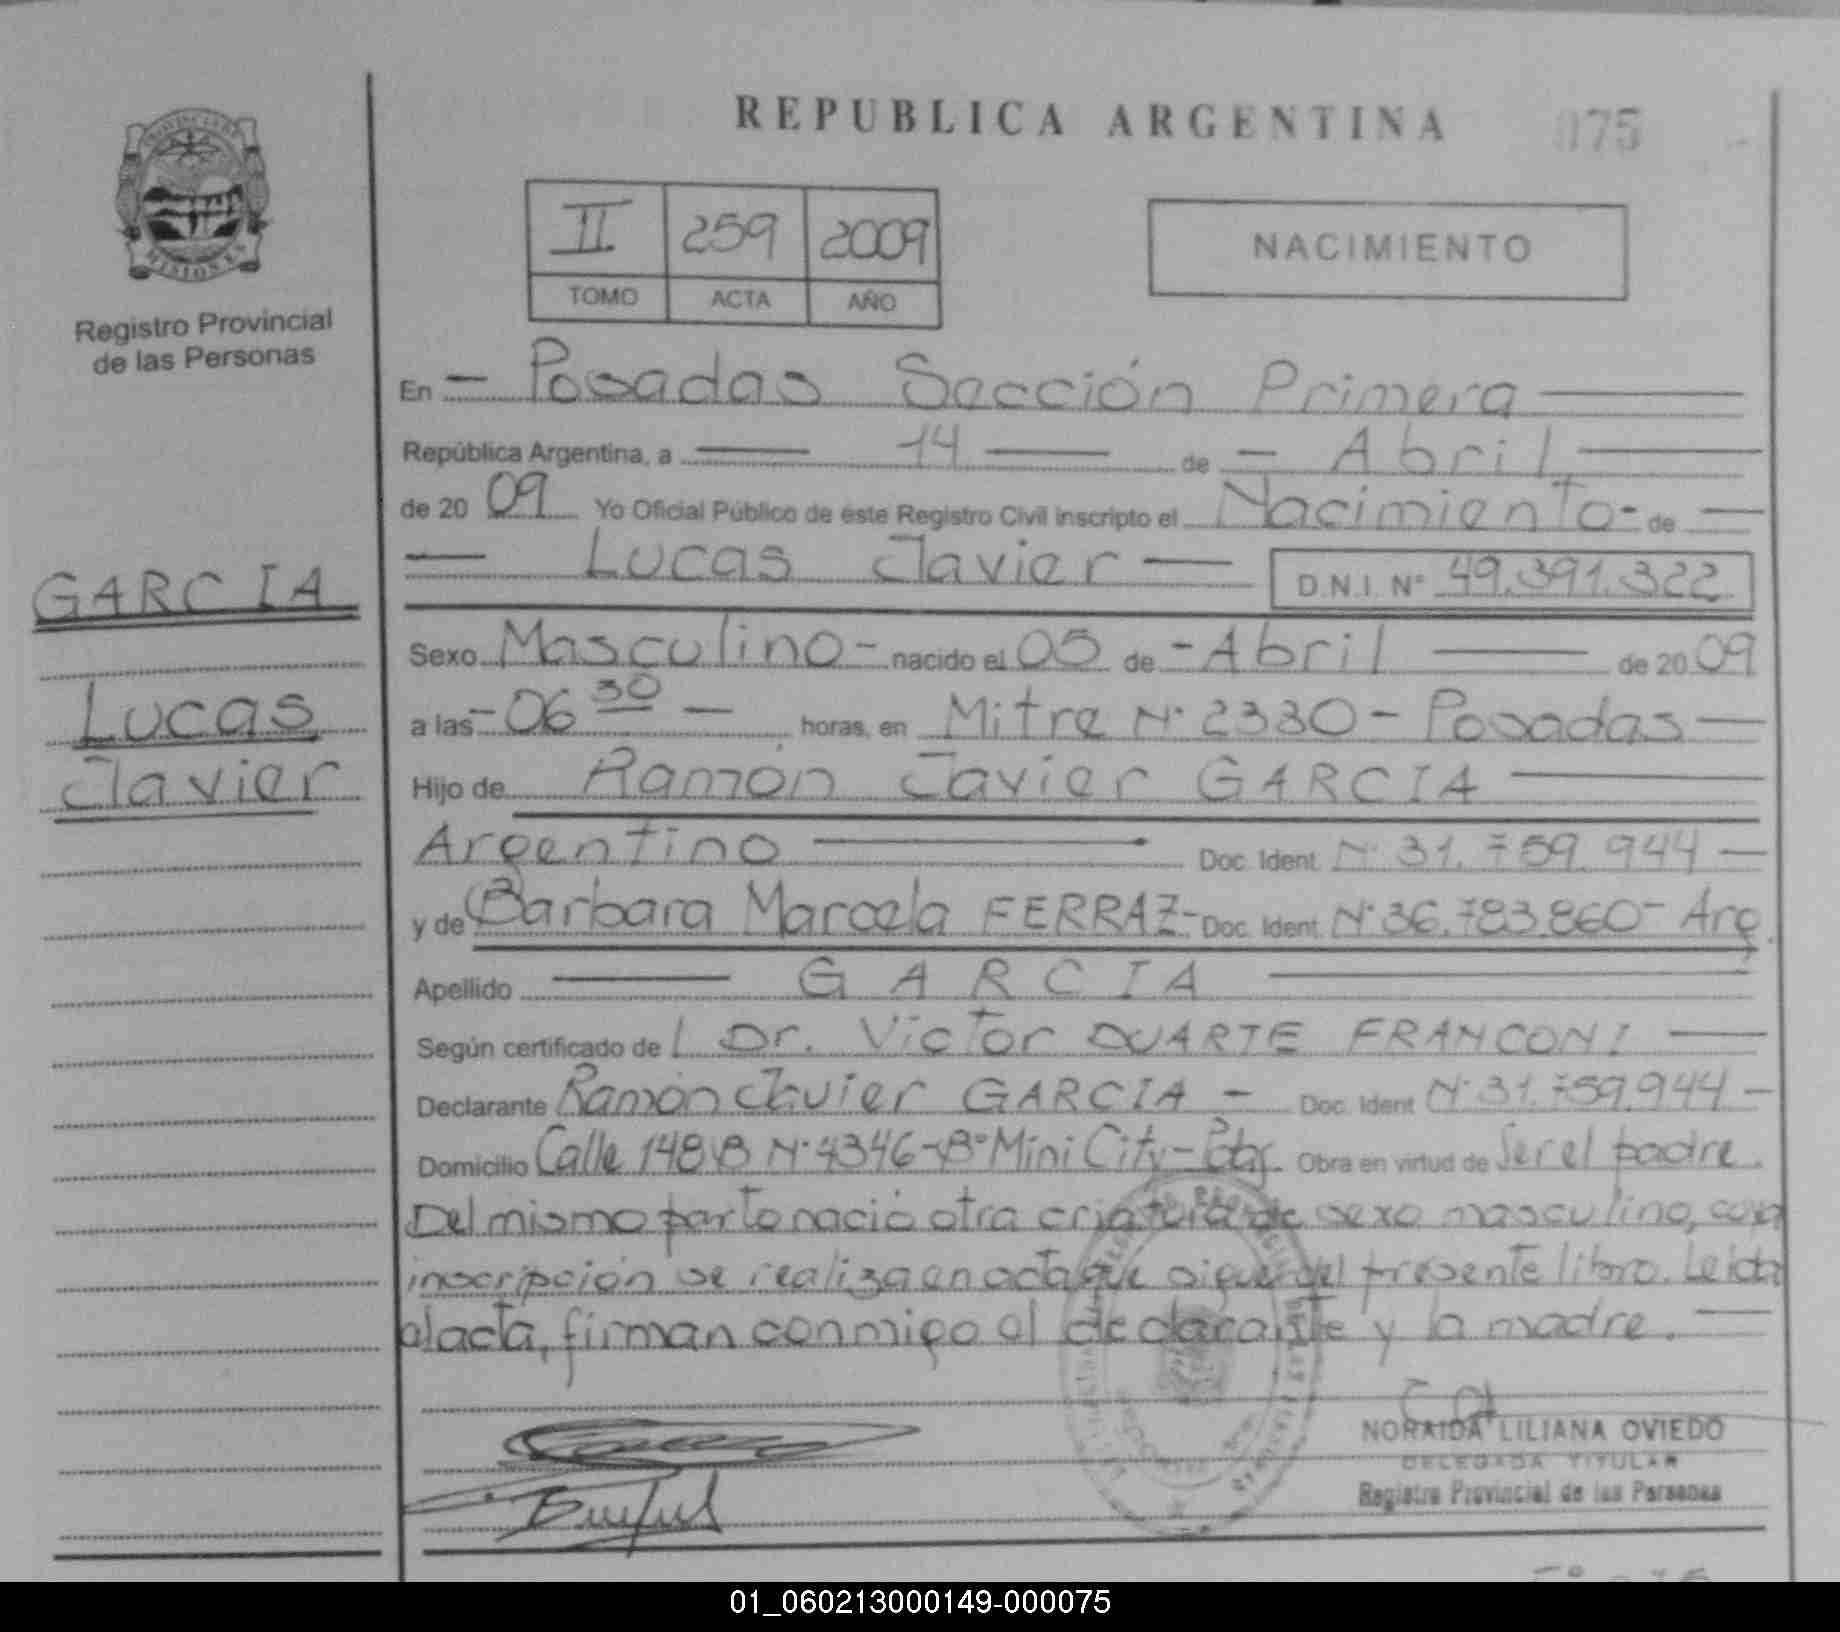 REPUBLICA ARGENTINA
075
PROVINCIA DE
MISIONES
Registro Provincial
de las Personas
II 259 2009
TOMO ACTA AÑO
NACIMIENTO
En - Posadas Sección Primera
República Argentina, a 14 de - Abril
de 20 09 Yo Oficial Público de este Registro Civil inscripto el Nacimiento - de
Lucas Javier D.N.I. Nº 49.391.322
GARCIA
Lucas
Javier
Sexo Masculino - nacido el 05 de - Abril de 20 09
a las - 06 30 - horas, en Mitre Nº 2330 - Posadas
Hijo de Ramón Javier GARCIA
Argentino Doc. Ident. Nº 31.759.944
y de Barbara Marcela FERRAZ - Doc. Ident. Nº 36.783.860 - Arg.
Apellido GARCIA
Según certificado de Dr. Victor DUARTE FRANCONI
Declarante Ramón Javier GARCIA - Doc. Ident Nº 31.759.944 -
Domicilio Calle 148 B Nº 4346 - Bº Mini City - Pdas. Obra en virtud de Ser el padre.
Del mismo parto nació otra criatura de sexo masculino, cuya
inscripción se realiza en acta que sigue del presente libro. Leida
el acta, firman conmigo el declarante y la madre.
NORAIDA LILIANA OVIEDO
DELEGADA TITULAR
Registro Provincial de las Personas
01_060213000149-000075